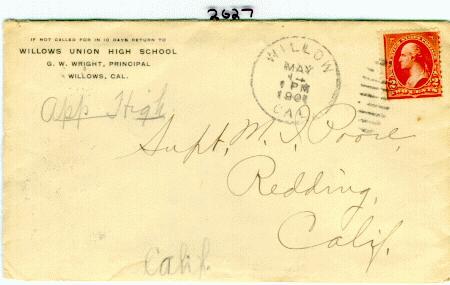 2627
IF NOT CALLED FOR IN 10 DAYS RETURN TO
WILLOWS UNION HIGH SCHOOL
G. W. WRIGHT, PRINCIPAL
WILLOWS, CAL.
WILLOW
MAY
14
1 PM
1901
CAL
2 2
TWO CENTS
App High
Supt. M. I. Poore,
Redding,
Calif.
Calif.